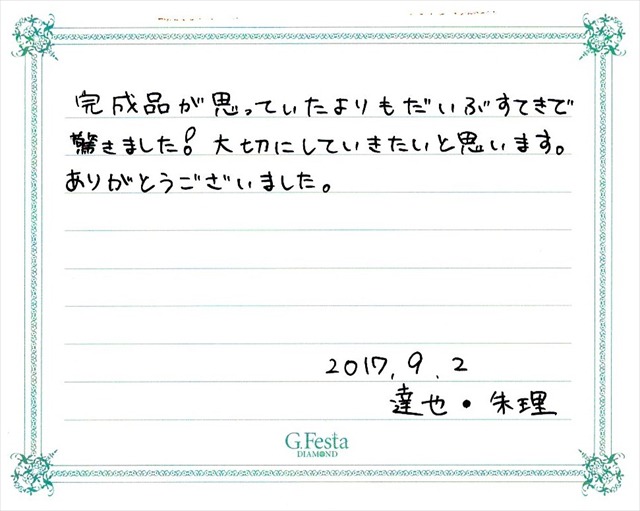 完成品が思っていたよりもだいぶすてきで
驚きました! 大切にしていきたいと思います。
ありがとうございました。
2017. 9. 2
達也・朱理
G.Festa
DIAMOND